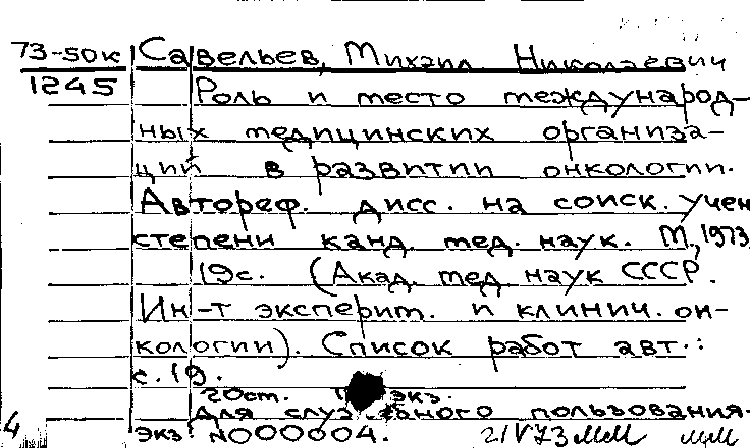 73-50к Савельев, Михаил Николаевич
1245 Роль и место международ-
ных медицинских организа-
ций в развитии онкологии.
Автореф. дисс. на соиск. учен
степени канд. мед. наук. М., 1973,
19с. (Акад. мед. наук СССР.
Ин-т эксперим. и клинич. он-
кологии). Список работ авт.:
с. 19.
экз.
Для пользования.
4 экз N000004. 21 V 73